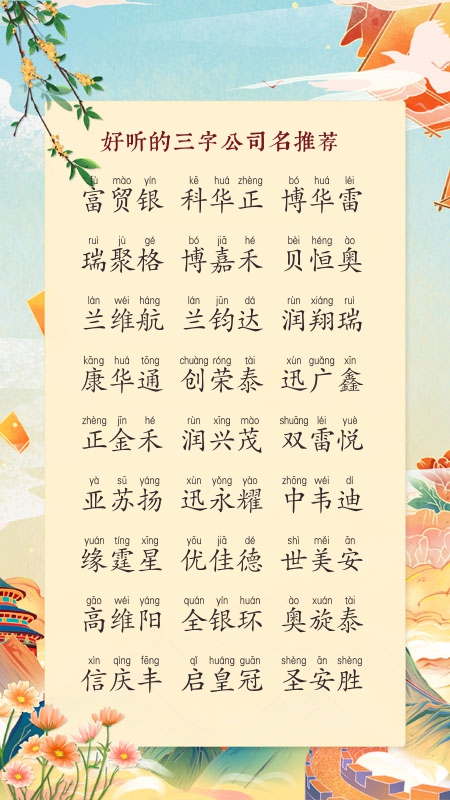 好听的三字公司名推荐
fù mào yín kē huá zhèng bó huá léi
富贸银 科华正 博华雷
ruì jù gé bó jiā hé bèi héng ào
瑞聚格 博嘉禾 贝恒奥
lán wéi háng lán jūn dá rùn xiáng ruì
兰维航 兰钧达 润翔瑞
kāng huá tōng chuàng róng tài xùn guǎng xīn
康华通 创荣泰 迅广鑫
zhèng jīn hé rùn xīng mào shuāng léi yuè
正金禾 润兴茂 双雷悦
yà sū yáng xùn yǒng yào zhōng wéi dí
亚苏扬 迅永耀 中韦迪
yuán tíng xīng yōu jiā dé shì měi ān
缘霆星 优佳德 世美安
gāo wéi yáng quán yín huán ào xuán tài
高维阳 全银环 奥旋泰
xìn qìng fēng qǐ huáng guān shèng ān shèng
信庆丰 启皇冠 圣安胜